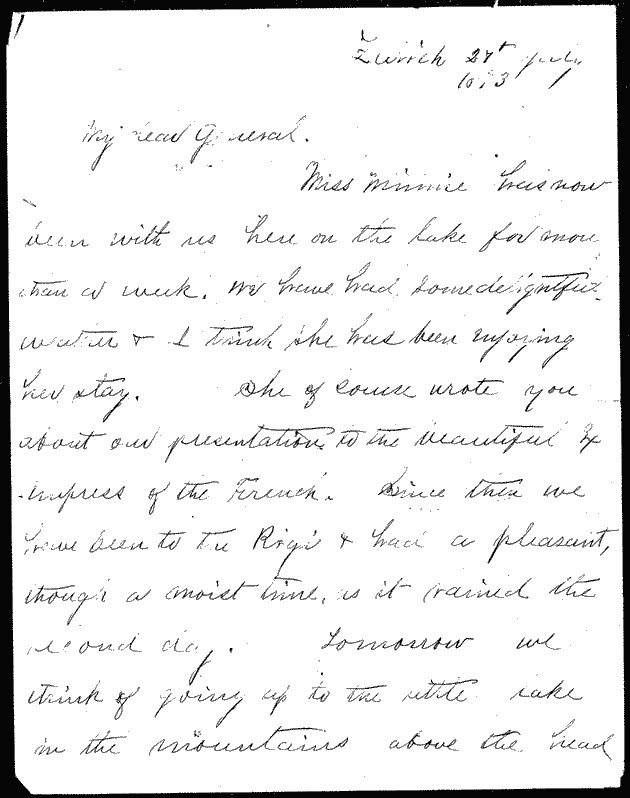 Zurich 27th July
1873
My dear General.
Miss Minnie has now
been with us here on the lake for more
than a week. We have had some delightful
weather & I think she has been enjoying
her stay. She of course wrote you
about our presentation to the beautiful Ex
-Empress of the French. Since then we
have been to the Rigi & had a pleasant,
though a moist time, as it rained the
second day. Tomorrow we
think of going up to the little lake
in the mountains above the head